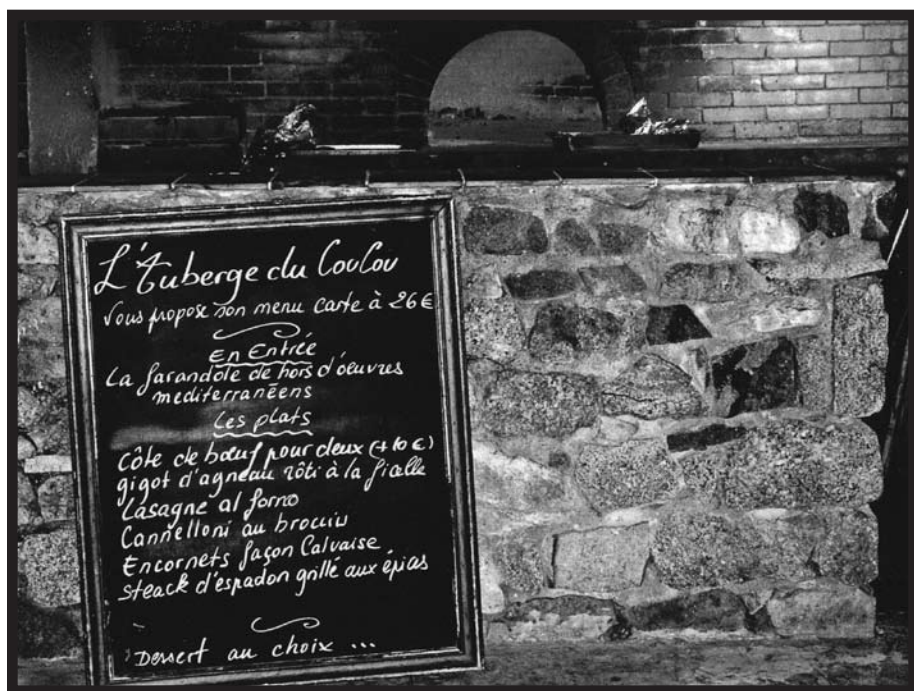 L'Auberge du CouCou
Vous propose son menu carte à 26€
En Entrée
La farandole de hors d'oeuvres
mediterranéens
Les plats
Côte de bœuf pour deux (+10€)
gigot d'agneau rôti à la ficelle
Lasagne al forno
Cannelloni au brocciu
Encornets façon Calvaise
steack d'espadon grillé aux épices
Dessert au choix ...